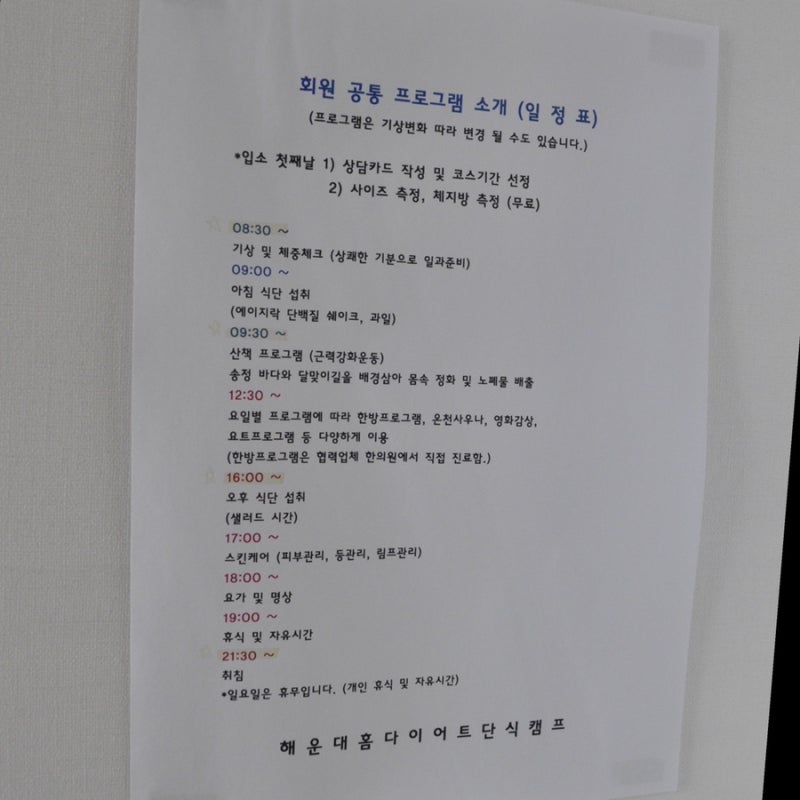 회원 공통 프로그램 소개 (일 정 표)
(프로그램은 기상변화 따라 변경 될 수도 있습니다.)
*입소 첫째날 1) 상담카드 작성 및 코스기간 선정
2) 사이즈 측정, 체지방 측정 (무료)
08:30 ~
기상 및 체중체크 (상쾌한 기분으로 일과준비)
09:00 ~
아침 식단 섭취
(에이지락 단백질 쉐이크, 과일)
09:30 ~
산책 프로그램 (근력강화운동)
송정 바다와 달맞이길을 배경삼아 몸속 정화 및 노폐물 배출
12:30 ~
요일별 프로그램에 따라 한방프로그램, 온천사우나, 영화감상,
요트프로그램 등 다양하게 이용
(한방프로그램은 협력업체 한의원에서 직접 진료함.)
16:00 ~
오후 식단 섭취
(샐러드 시간)
17:00 ~
스킨케어 (피부관리, 등관리, 림프관리)
18:00 ~
요가 및 명상
19:00 ~
휴식 및 자유시간
21:30 ~
취침
*일요일은 휴무입니다. (개인 휴식 및 자유시간)
해 운 대 홈 다 이 어 트 단 식 캠 프